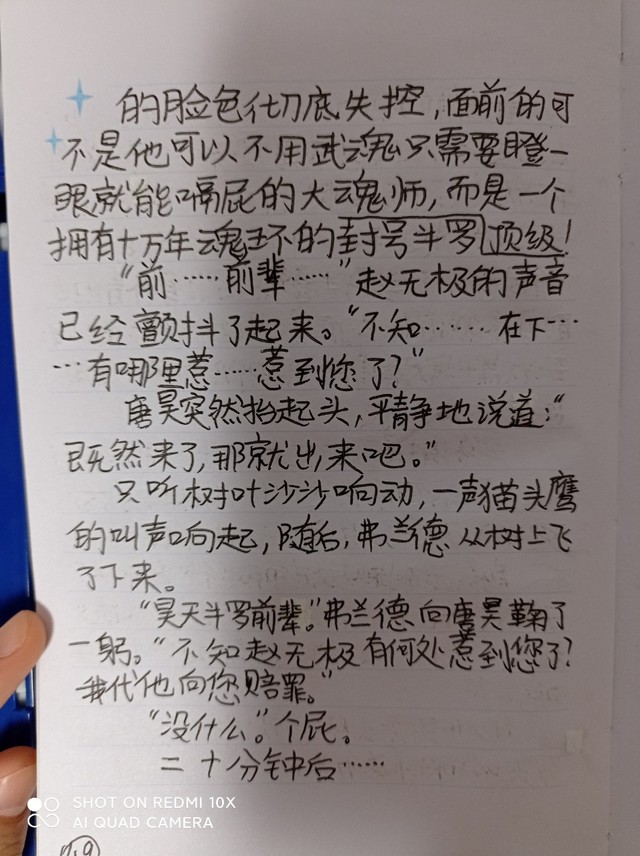 的脸色彻底失控，面前的可
不是他可以不用武魂只需要瞪一
眼就能嗝屁的大魂师，而是一个
拥有十万年魂环的封号斗罗顶级！
“前……前辈……”赵无极的声音
已经颤抖了起来。“不知……在下…
…有哪里惹……惹到您了？”
唐昊突然抬起头，平静地说道：“
既然来了，那就出来吧。”
只听树叶沙沙响动，一声猫头鹰
的叫声响起，随后，弗兰德从树上飞
了下来。
“昊天斗罗前辈。”弗兰德向唐昊鞠了
一躬。“不知赵无极有何处惹到您了？
我代他向您赔罪。”
“没什么。”个屁。
二十分钟后……
SHOT ON REDMI 10X
AI QUAD CAMERA